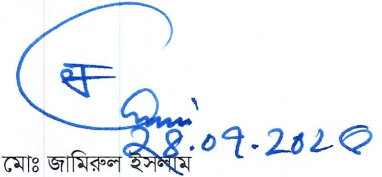 ২৪.০৭.২০২৫
মোঃ জামিরুল ইসলাম